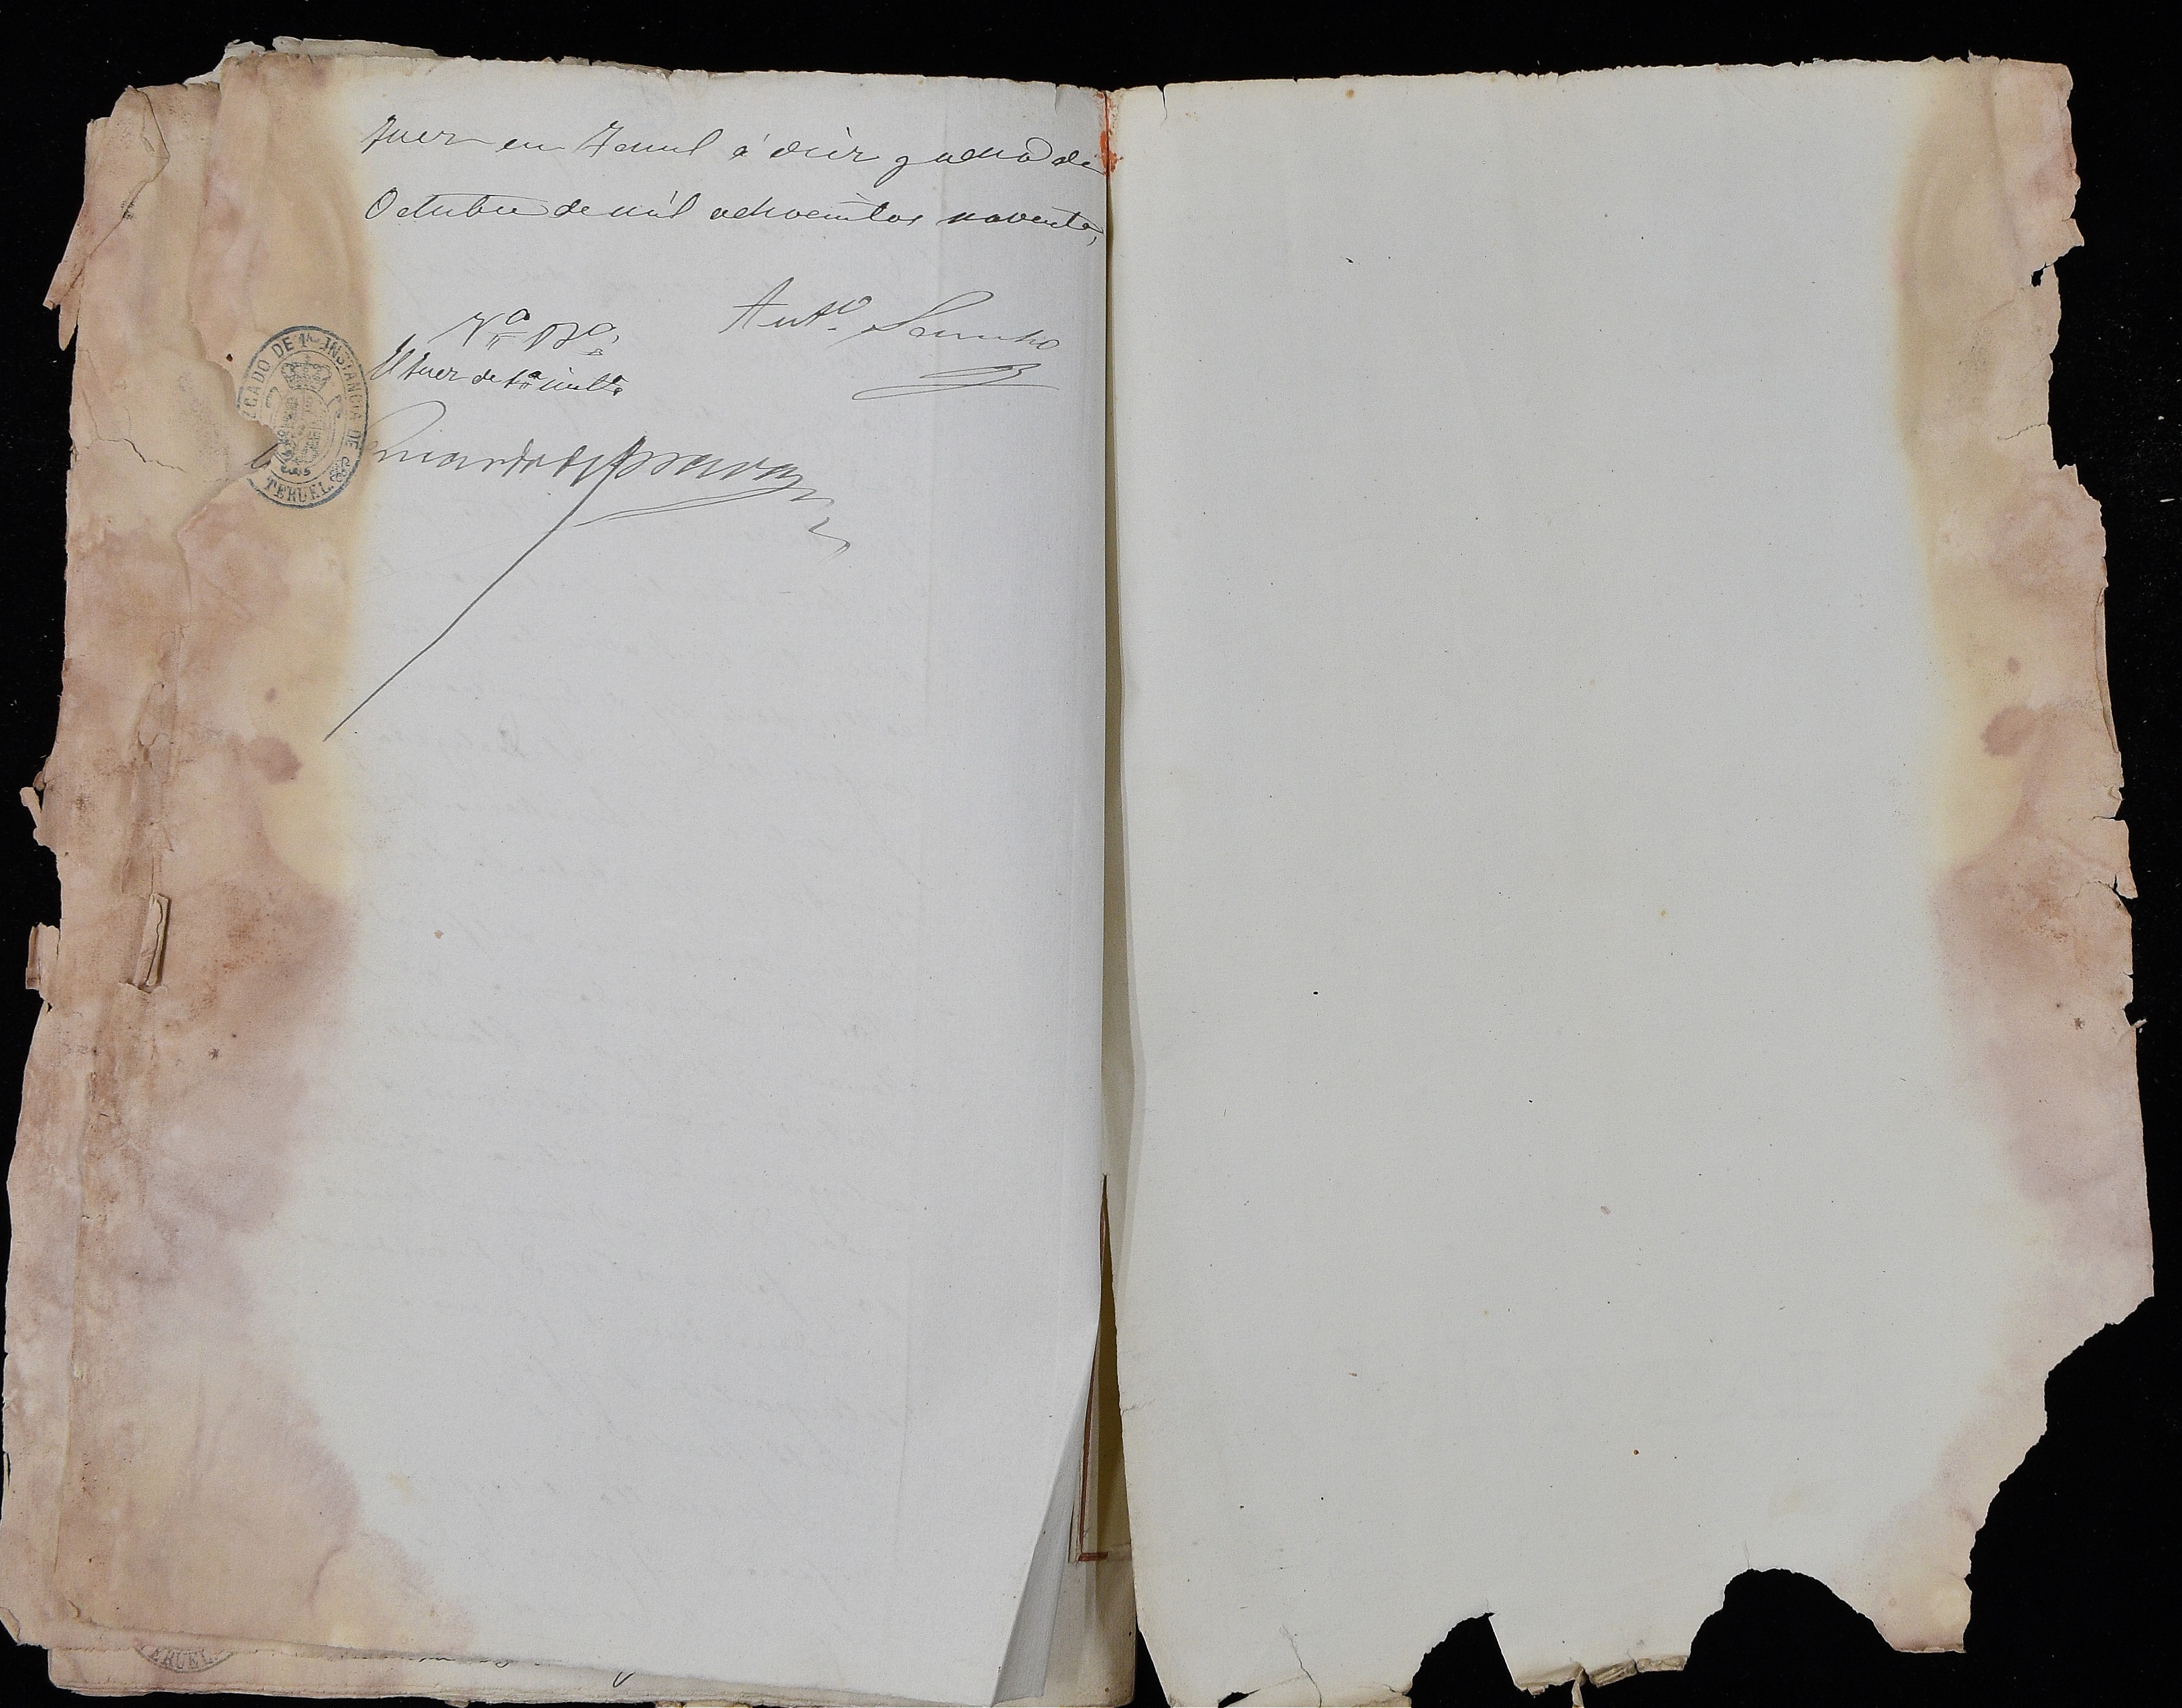 Juez en Teruel á diez y ocho de
Octubre de mil ochocientos noventa,
Antº Sancho
Vº Bº
El Juez de 1ª instª
JUZGADO DE 1ª INSTANCIA DE
TERUEL
ERUEL